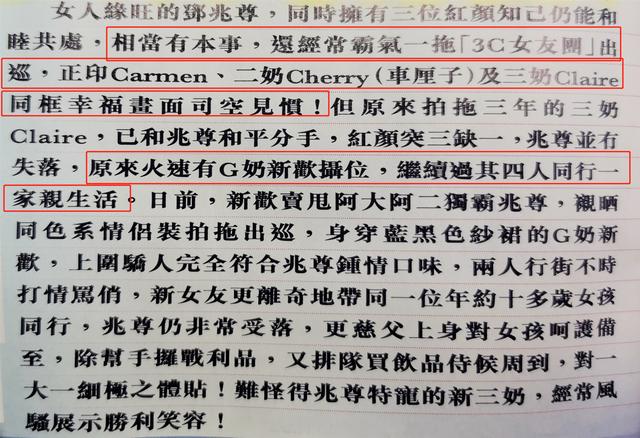 女人緣旺的鄧兆尊，同時擁有三位紅顏知己仍能和
睦共處，相當有本事，還經常霸氣一拖「3C女友團」出
巡，正印Carmen、二奶Cherry（車厘子）及三奶Claire
同框幸福畫面司空見慣！但原來拍拖三年的三奶
Claire，已和兆尊和平分手，紅顏突三缺一，兆尊並有
失落，原來火速有G奶新歡攝位，繼續過其四人同行一
家親生活。日前，新歡賣甩阿大阿二獨霸兆尊，襯晒
同色系情侶裝拍拖出巡，身穿藍黑色紗裙的G奶新
歡，上圍驕人完全符合兆尊鍾情口味，兩人行街不時
打情罵俏，新女友更離奇地帶同一位年約十多歲女孩
同行，兆尊仍非常受落，更慈父上身對女孩呵護備
至，除幫手攞戰利品，又排隊買飲品侍候周到，對一
大一細極之體貼！難怪得兆尊特寵的新三奶，經常風
騷展示勝利笑容！